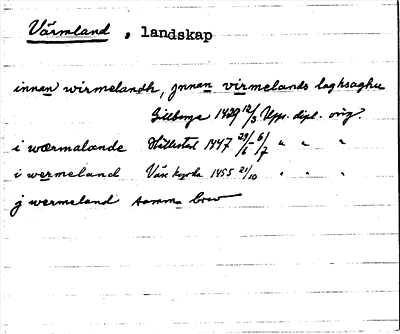 Värmland, landskap
innan wirmelandh, jnnan virmelands laghsaghu
Gillberga 1429 12/3 Upps. dipl. orig.
i wærmalande Hällestad 1447 29/6-6/7 " " "
i wermeland Väse kyrka 1455 21/10 " " "
j wermeland samma brev